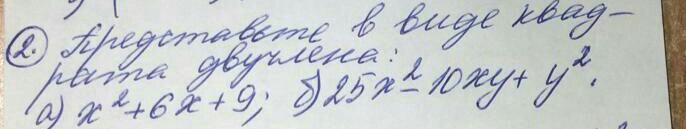 2. Представьте в виде квад-
рата двучлена:
а) x²+6x+9; б) 25x²-10xy+y².